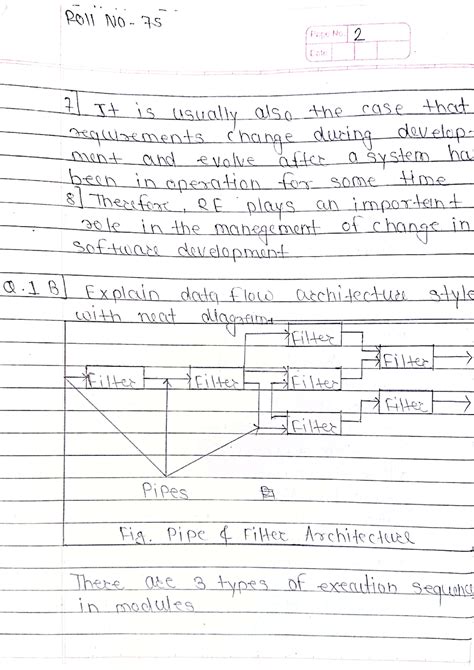 Roll No - 75
Page No. 2
Date
7] It is usually also the case that
requirements change during develop-
ment and evolve after a system ha
been in operation for some time
8] Therefore, RE plays an importent
role in the manegement of change in
software development
Q.1 B] Explain data flow architecture style
with neat diagram.
Filter
Filter
Filter Filter Filter
Filter
Filter
Pipes
Fig. Pipe & Filter Architecture
There are 3 types of execution sequenc
in modules